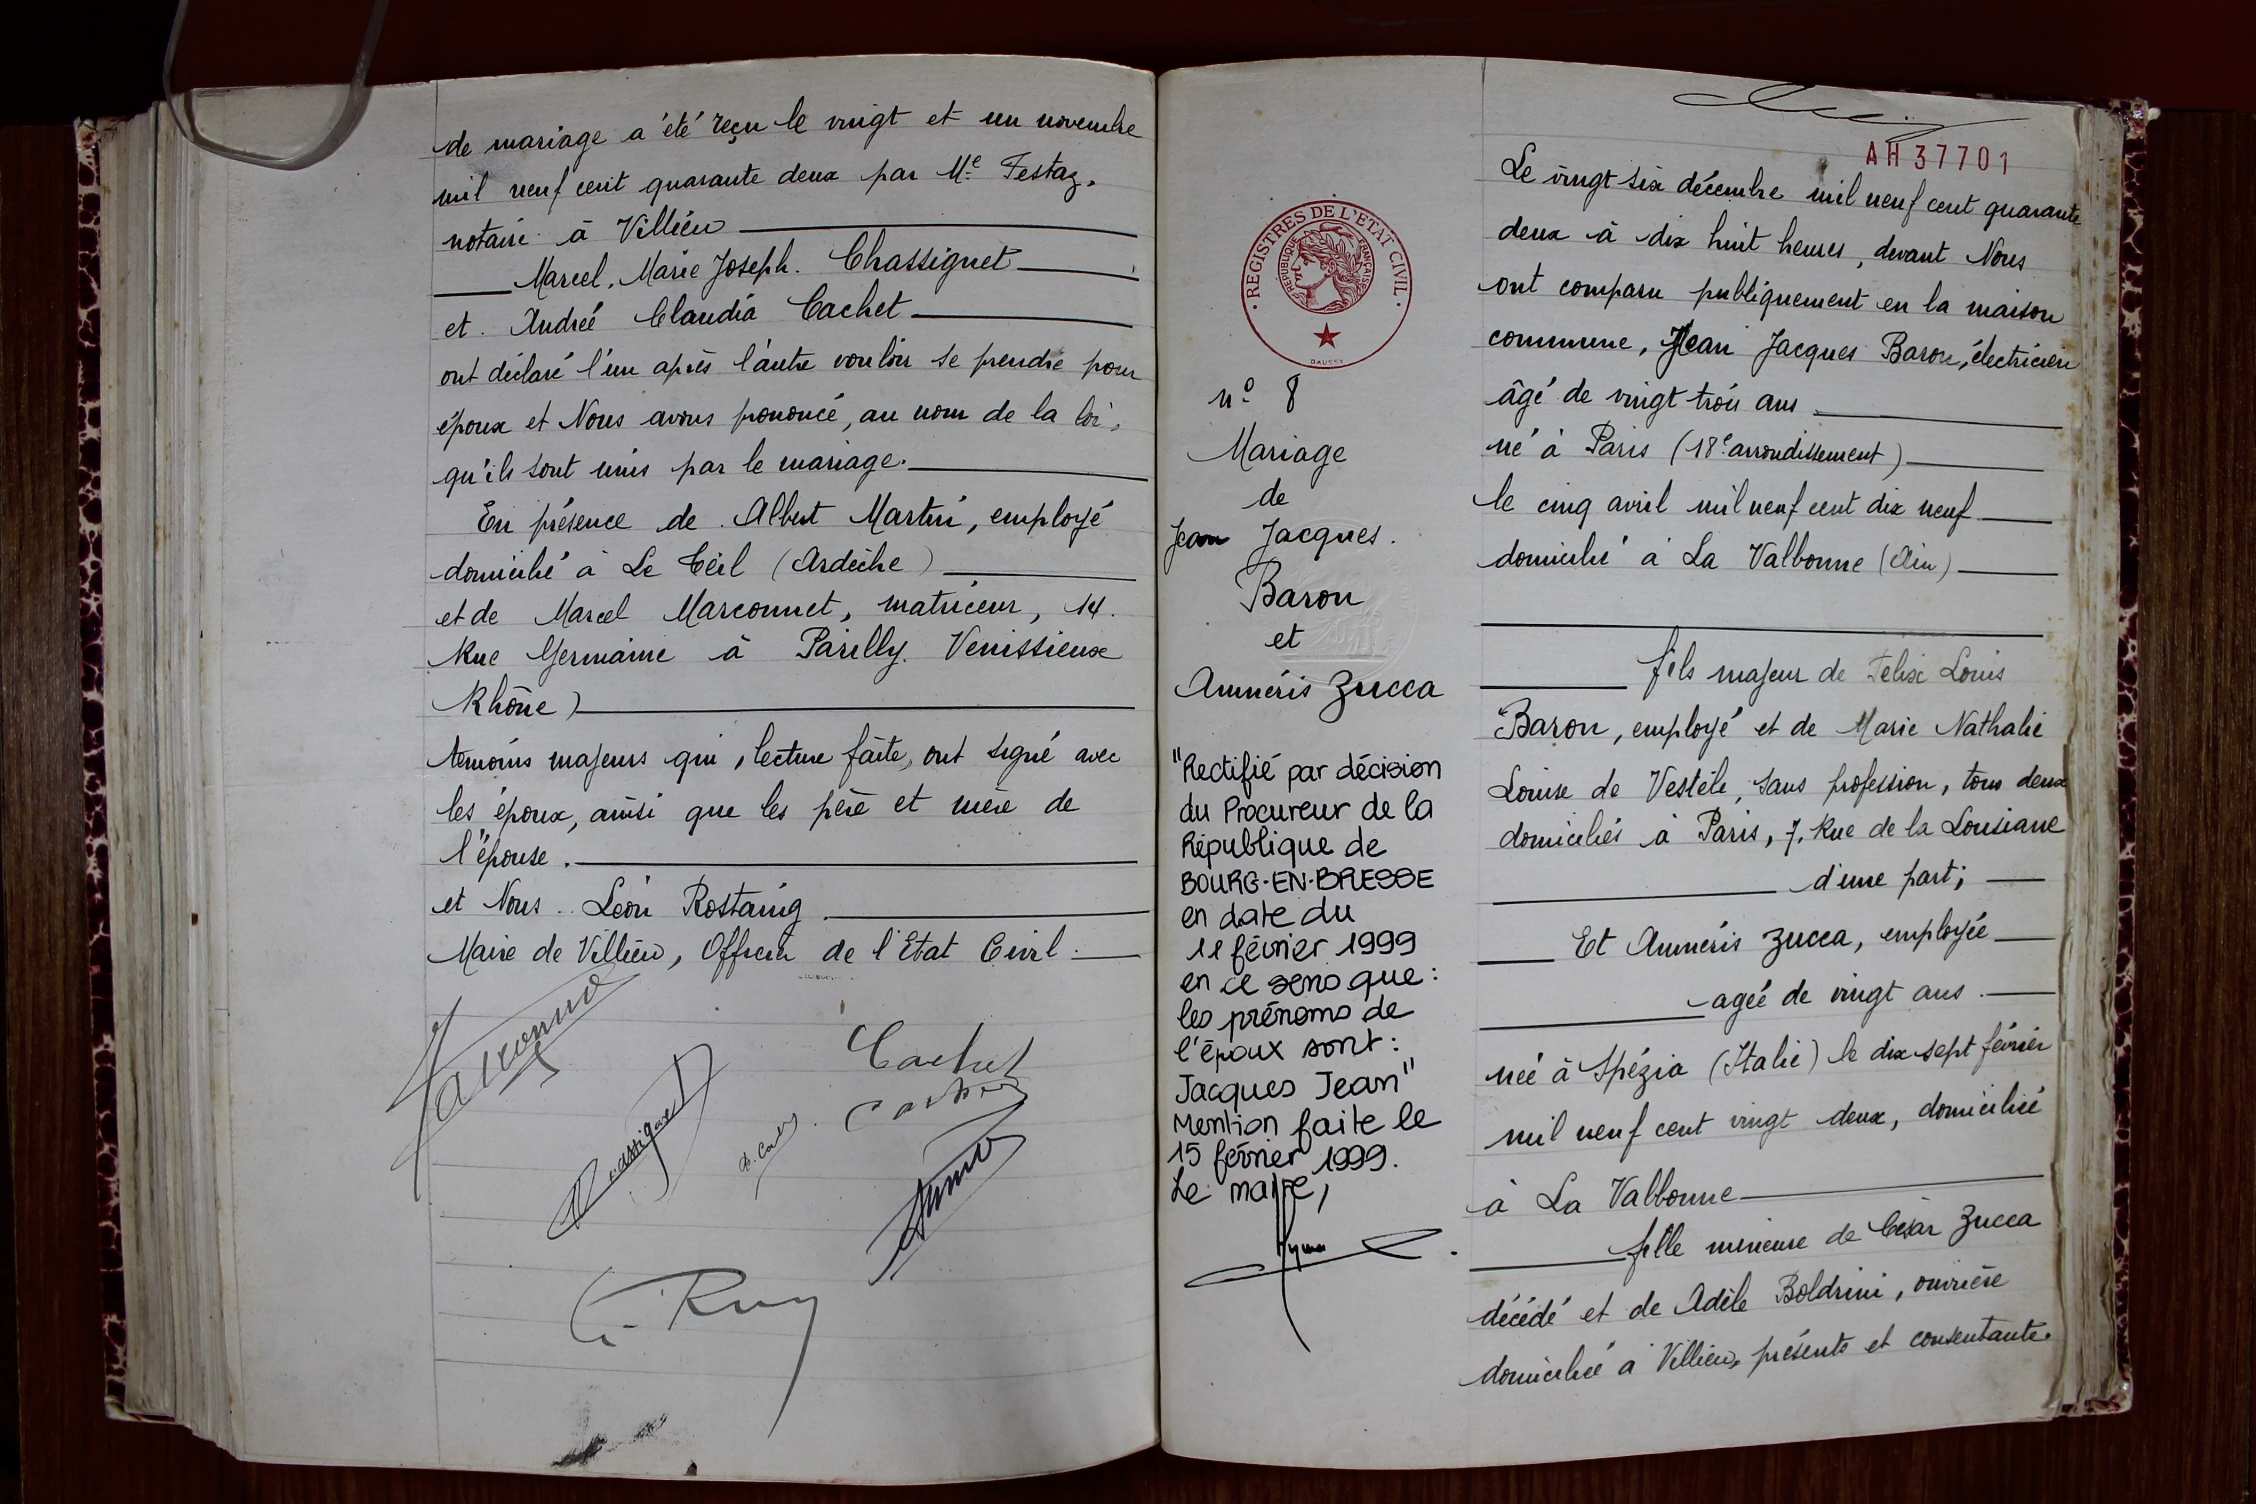 de mariage a été reçu le vingt et un novembre
mil neuf cent quarante deux par Me Festaz,
notaire à Villieu
Marcel, Marie Joseph. Chassignet
et. Andréé Claudia Cachet
ont déclaré l'un après l'autre vouloir se prendre pour
époux et Nous avons prononcé, au nom de la loi,
qu'ils sont unis par le mariage.
En présence de. Albert Martin, employé
domicilié à Le Teil (Ardèche)
et de Marcel Marconnet, matriceur, 14.
Rue Germaine à Parilly. Venissieux
Rhône)
témoins majeurs qui, lecture faite, ont signé avec
les époux, ainsi que les père et mère de
l'épouse.
et Nous.. Léon Rostaing
Maire de Villieu, Officier de l'Etat Civil.
Chassignet
Cachet
Cachet
C. Ruy
REGISTRES DE L'ETAT CIVIL
REPUBLIQUE FRANÇAISE
n° 8
Mariage
de
Jean Jacques.
Baron
et
Amnéris Zucca
"Rectifié par décision
du Procureur de la
République de
BOURG-EN-BRESSE
en date du
11 février 1999
en ce sens que:
les prénoms de
l'époux sont:
Jacques Jean"
Mention faite le
15 février 1999.
Le maire,
AH37701
Le vingt six décembre mil neuf cent quarante
deux à dix huit heures, devant Nous
ont comparu publiquement en la maison
commune, Jean Jacques Baron, électricien
âgé de vingt trois ans
né à Paris (18e arrondissement)
le cinq avril mil neuf cent dix neuf
domicilié à La Valbonne (Ain)
fils majeur de Felix Louis
Baron, employé et de Marie Nathalie
Louise de Vestèle, sans profession, tous deux
domiciliés à Paris, 7, Rue de la Louisiane
d'une part;
Et Amnéris Zucca, employée
agée de vingt ans.
née à Spézia (Italie) le dix sept février
mil neuf cent vingt deux, domiciliée
à La Valbonne
fille mineure de César Zucca
décédé et de Adèle Boldrini, ouvrière
domiciliée à Villieu, présente et consentante.